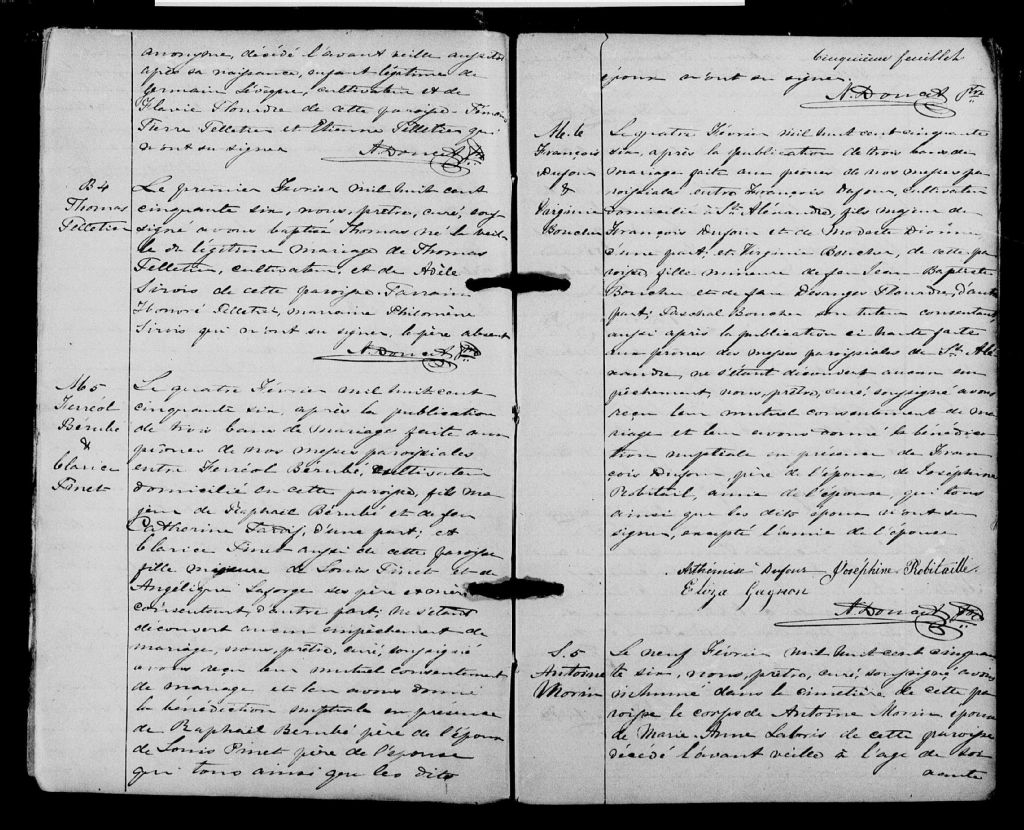 anonyme, décédé l'avant veille aussitôt
après sa naissance, enfant légitime de
Germain Lévèque, cultivateur et de
Flavie Plourdre de cette paroisse. Témoins
Pierre Pelletier et Etienne Pelletier qui
n'ont su signer
N. Doucet Ptre
B 4
Thomas
Pelletier
Le premier Février mil huit cent
cinquante six, nous, prêtre, curé, sous-
signé avons baptisé Thomas né la veil-
le du légitime mariage de Thomas
Pelletier, cultivateur, et de Adèle
Sirois de cette paroisse. Parrain
Honoré Pelletier, marraine Philomène
Sirois qui n'ont su signer, le père absent
N. Doucet Ptre
M 5
Ferréol
Bérubé
&
Clarice
Pinet
Le quatre Février mil huit cent
cinquante six, après la publication
de trois bans de mariage faite aux
prônes de nos messes paroissiales
entre Ferréol Bérubé, cultivateur
domicilié en cette paroisse, fils ma-
jeur de Raphaël Bérubé et de feu
Catherine Tardif, d'une part; et
Clarice Pinet aussi de cette paroisse
fille mineure de Louis Pinet et de
Angélique Laforge ses père et mère
consentant, d'autre part; ne s'étant
découvert aucun empêchement de
mariage, nous, prêtre, curé, soussigné
avons reçu leur mutuel consentement
de mariage et leur avons donné
la bénédiction nuptiale en présence
de Raphaël Bérubé père de l'époux
de Louis Pinet père de l'épouse
qui tous ainsi que les dits
Cinquième feuillet
époux n'ont su signer.
N. Doucet Ptre
M. 6
François
Dufour
&
Virginie
Boucher
Le quatre Février mil huit cent cinquante
six, après la publication de trois bans de
mariage faite aux prônes de nos messes pa-
roissiales entre François Dufour, cultivateur
domicilié à St. Alexandre, fils majeur de
François Dufour et de Modeste Dionne,
d'une part; et Virginie Boucher, de cette pa-
roisse, fille mineure de feu Jean Baptiste
Boucher et de feu Desanges Plourdre, d'autre
part; Paschal Boucher son tuteur consentant
aussi après la publication ci haute faite
aux prônes des messes paroissiales de St. Ale-
xandre, ne s'étant découvert aucun em-
pêchement, nous, prêtre, curé, soussigné avons
reçu leur mutuel consentement de ma-
riage et leur avons donné la bénédic-
tion nuptiale en présence de Fran-
çois Dufour, père de l'époux, de Joséphine
Robitaille, amie de l'épouse, qui tous
ainsi que les dits époux n'ont su
signer, excepté l'amie de l'épouse
Arthémise Dufour Joséphine Robitaille.
Eliza Gagnon
N. Doucet Ptre
S. 5
Antoine
Morin
Le neuf Février mil huit cent cinquan-
te six, nous, prêtre, curé, soussigné avons
inhumé dans le cimetière de cette pa-
roisse le corps de Antoine Morin, époux
de Marie Anne Laboris de cette paroisse
décédé l'avant veille à l'age de soi-
xante